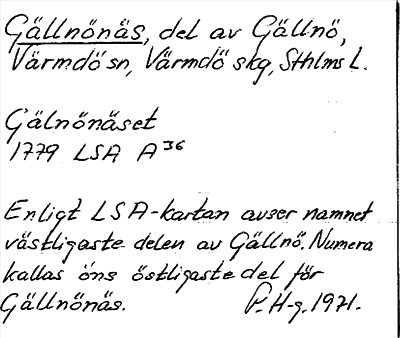 Gällnönäs, del av Gällnö,
Värmdö sn, Värmdö skg, Sthlms L.
Gälnönäset
1779 LSA A 36
Enligt LSA-kartan avser namnet
västligaste delen av Gällnö. Numera
kallas öns östligaste del för
Gällnönäs. P. H-g. 1971.